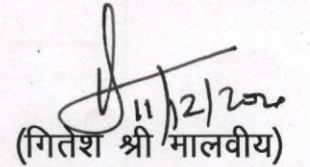 11/12/202
(गितेश श्री मालवीय)